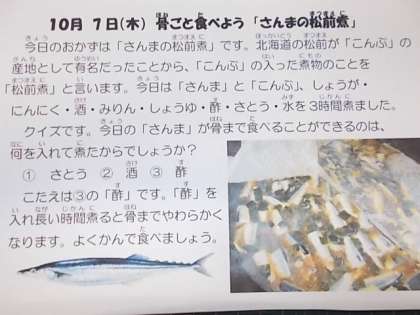 10月 7日(木) 骨ごと食べよう 「さんまの松前煮」
今日のおかずは「さんまの松前煮」です。北海道の松前が「こんぶ」の
産地として有名だったことから、「こんぶ」の入った煮物のことを
「松前煮」と言います。今日は「さんま」と「こんぶ」、しょうが・
にんにく・酒・みりん・しょうゆ・酢・さとう・水を3時間煮ました。
クイズです。今日の「さんま」が骨まで食べることができるのは、
何を入れて煮たからでしょうか?
① さとう ② 酒 ③ 酢
こたえは③の「酢」です。「酢」を
入れ長い時間煮ると骨までやわらかく
なります。よくかんで食べましょう。